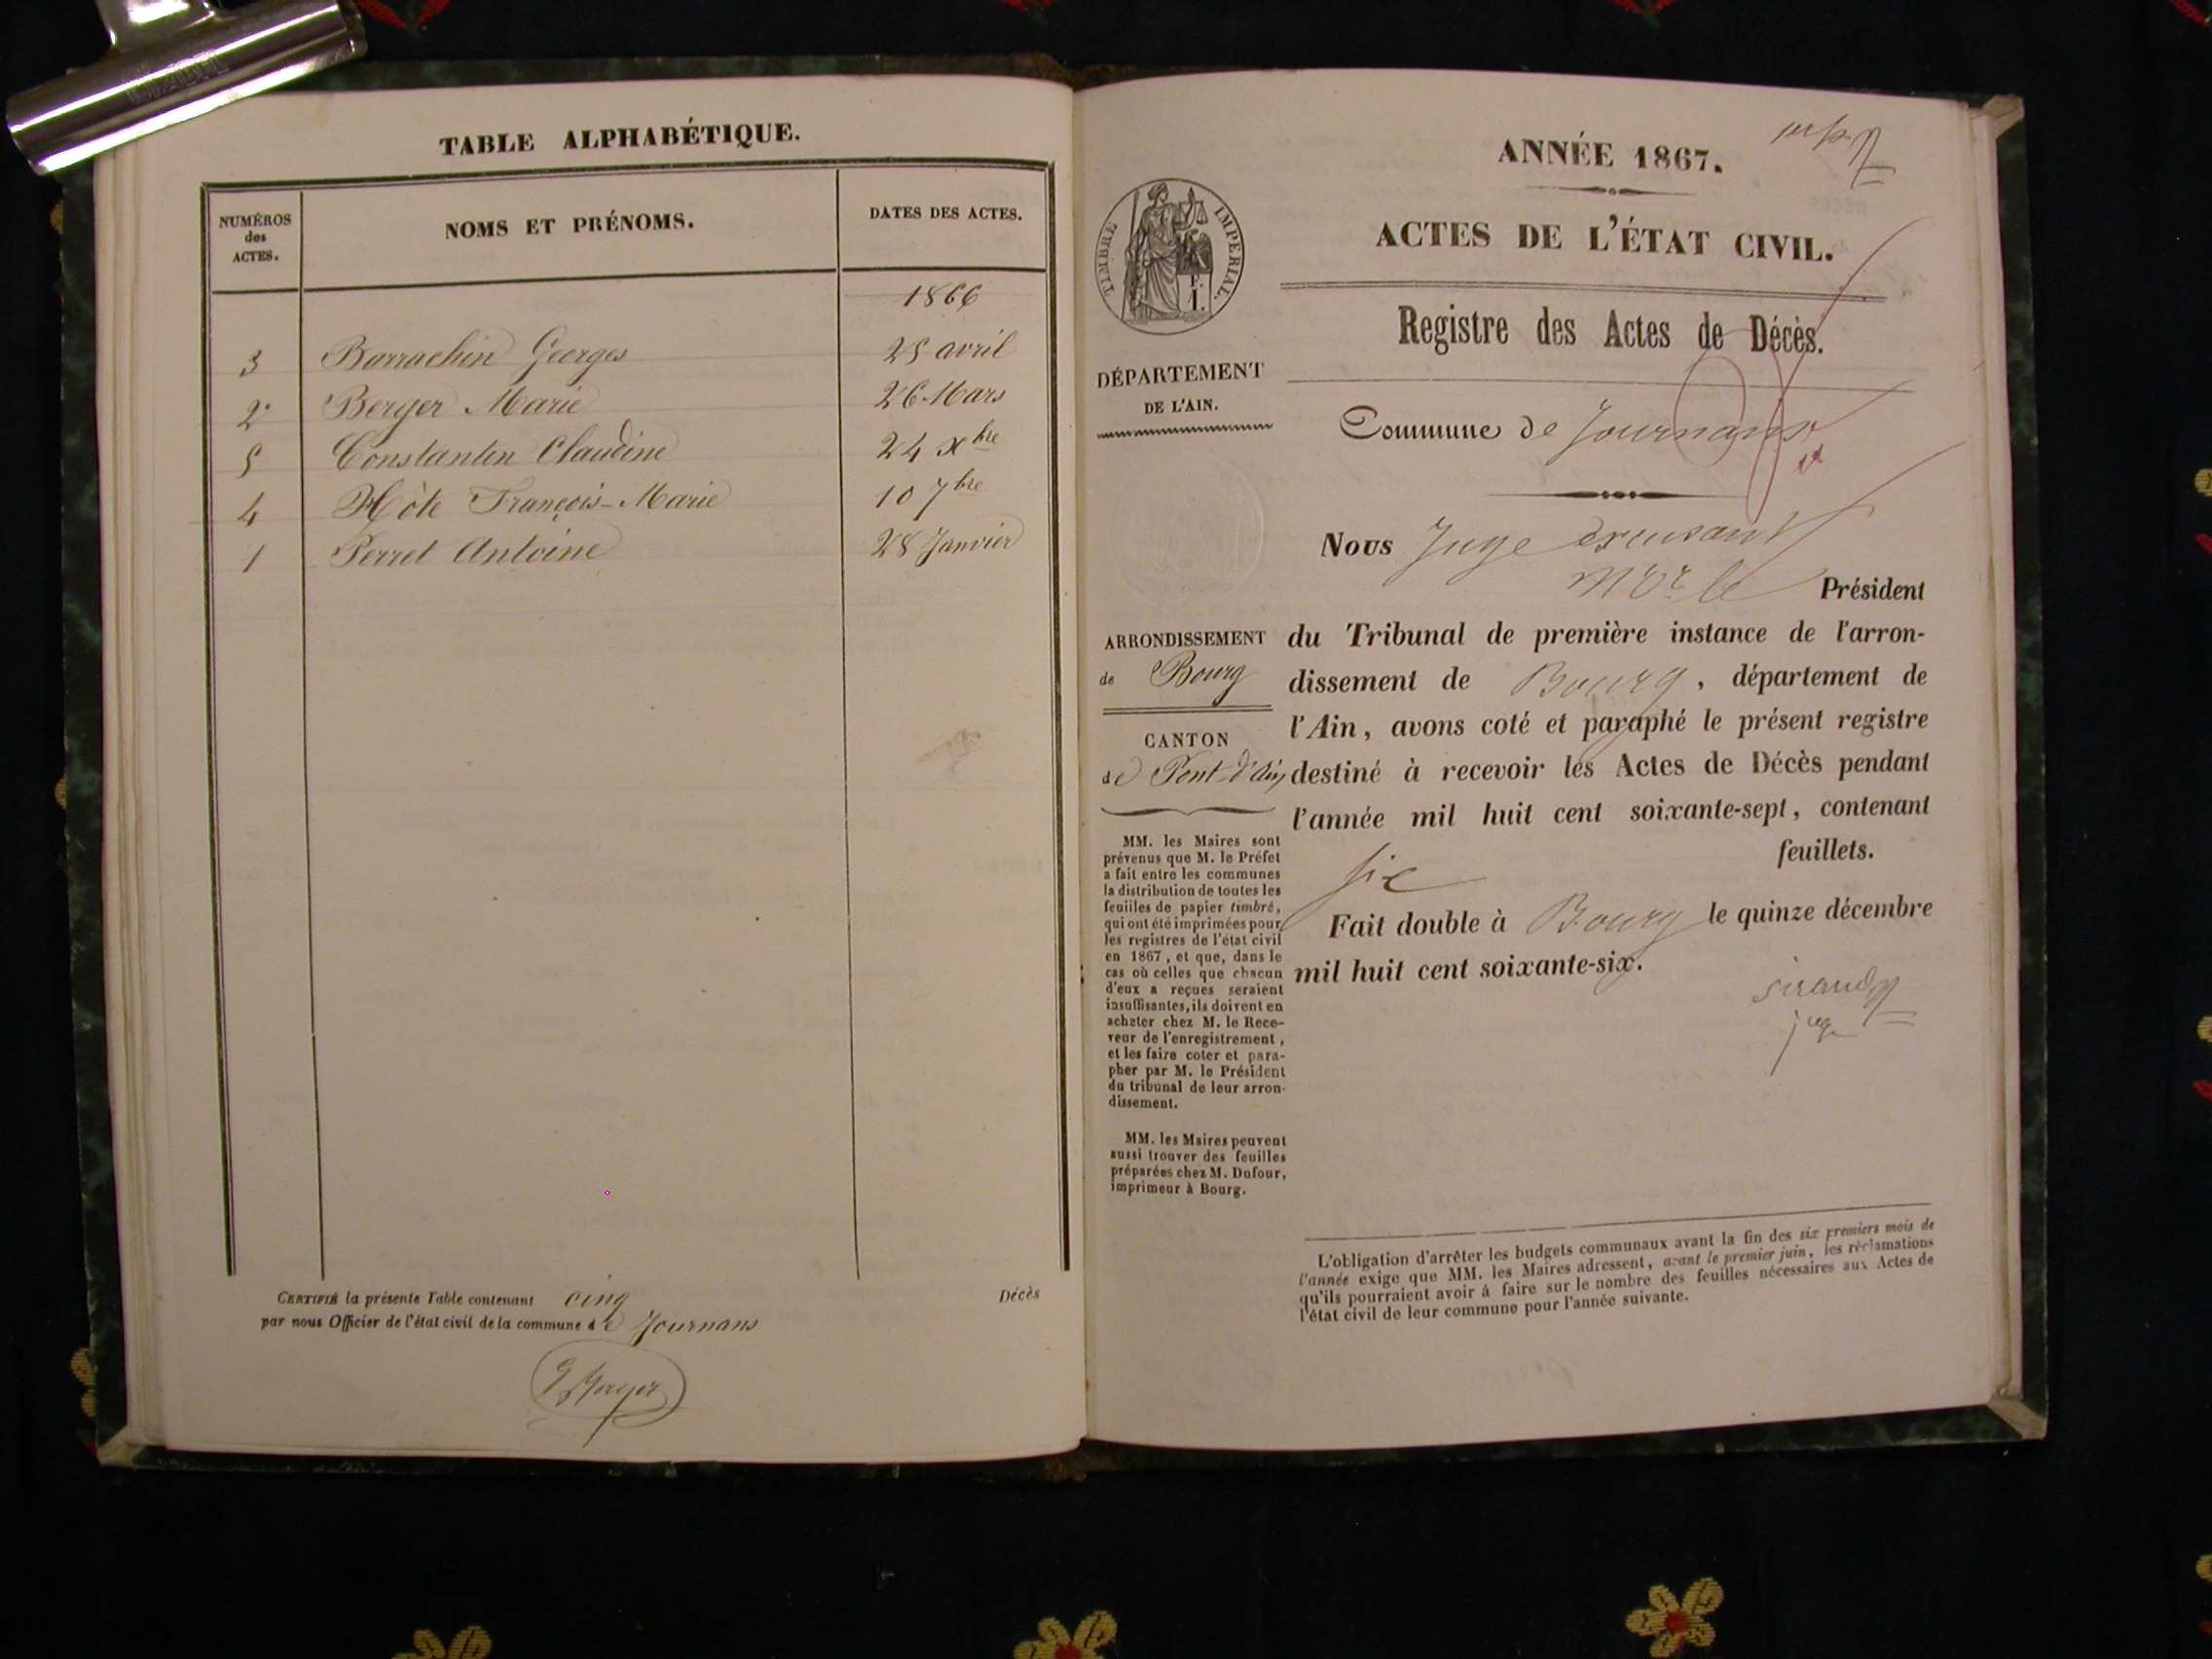 TABLE ALPHABÉTIQUE.
NUMÉROS des ACTES.
NOMS ET PRÉNOMS.
DATES DES ACTES.
1866
3 Barrachin Georges 25 avril
2 Berger Marie 26 Mars
5 Constantin Claudine 24 xbre
4 Hôte François-Marie 10 7bre
1 Perret Antoine 28 Janvier
CERTIFIÉ la présente Table contenant cinq Décès
par nous Officier de l'état civil de la commune de Journans
ANNÉE 1867.
ACTES DE L'ÉTAT CIVIL.
TIMBRE IMPÉRIAL.
Registre des Actes de Décès.
DÉPARTEMENT
DE L'AIN.
Commune de Journans
Nous Juge
Président
ARRONDISSEMENT
de Bourg
CANTON
de Pont-d'Ain
du Tribunal de première instance de l'arron-
dissement de Bourg, département de
l'Ain, avons coté et paraphé le présent registre
destiné à recevoir les Actes de Décès pendant
l'année mil huit cent soixante-sept, contenant
six feuillets.
Fait double à Bourg le quinze décembre
mil huit cent soixante-six.
juge
MM. les Maires sont
prévenus que M. le Préfet
a fait entre les communes
la distribution de toutes les
feuilles de papier timbré,
qui ont été imprimées pour
les registres de l'état civil
en 1867, et que, dans le
cas où celles que chacun
d'eux a reçues seraient
insuffisantes, ils doivent en
acheter chez M. le Rece-
veur de l'enregistrement,
et les faire coter et para-
pher par M. le Président
du tribunal de leur arron-
dissement.
MM. les Maires peuvent
aussi trouver des feuilles
préparées chez M. Dufour,
imprimeur à Bourg.
L'obligation d'arrêter les budgets communaux avant la fin des six premiers mois de
l'année exige que MM. les Maires adressent, avant le premier juin, les réclamations
qu'ils pourraient avoir à faire sur le nombre des feuilles nécessaires aux Actes de
l'état civil de leur commune pour l'année suivante.